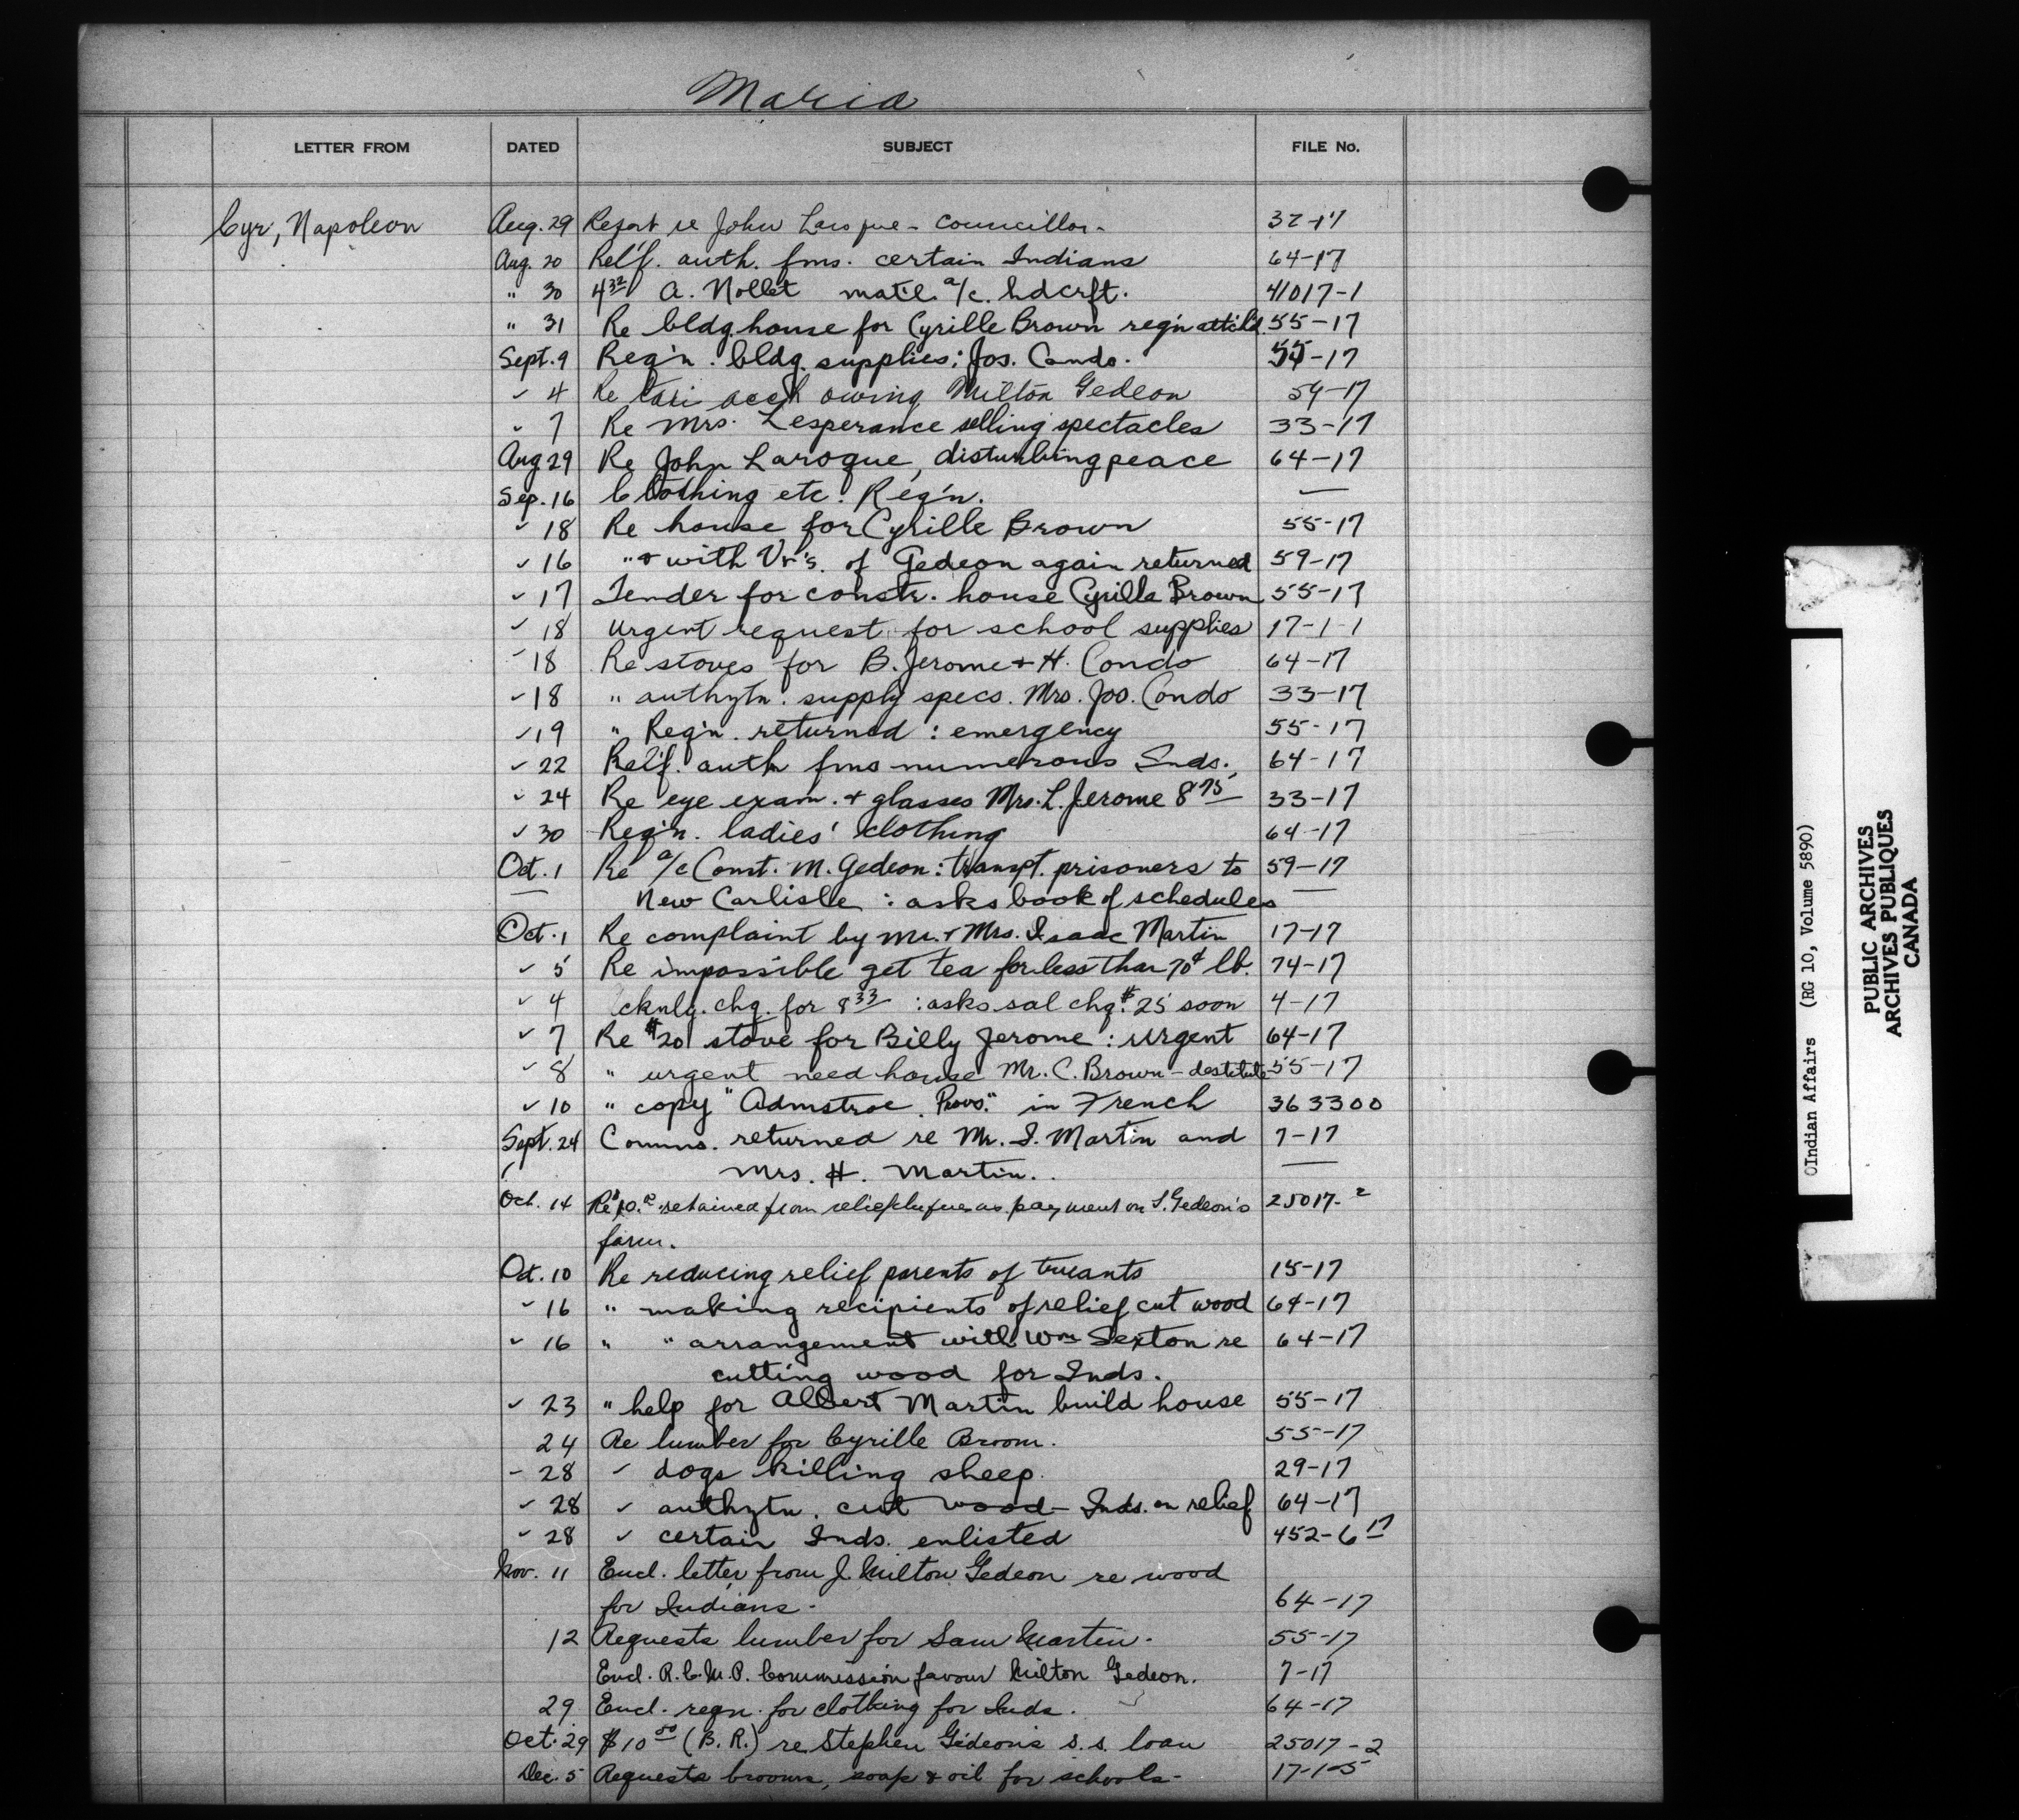 Maria
LETTER FROM DATED SUBJECT FILE No.
Cyr, Napoleon Aug. 29 Report re John - Councillor - 32-17
Aug. 20 Rel'f. auth. fms. certain Indians 64-17
" 30 4 32 A. Nollet mat'l. a/c. hdcrft. 41017-1
" 31 Re bldg. house for Cyrille Brown reg'n attch'd. 55-17
Sept. 9 Reg'n. bldg. supplies; Jos. Condo. 55-17
" 4 Re taxi acct owing Milton Gedeon 59-17
" 7 Re Mrs. Lesperance selling spectacles 33-17
Aug 29 Re John Laroque, disturbing peace 64-17
Sep. 16 Clothing etc. Reg'n. —
" 18 Re house for Cyrille Brown 55-17
" 16 " + with Vr's. of Gedeon again returned 59-17
" 17 Tender for constr. house Cyrille Brown 55-17
" 18 Urgent request for school supplies 17-1-1
" 18 Re stoves for B. Jerome + H. Condo 64-17
" 18 " authztn. supply specs. Mrs. Jos. Condo 33-17
" 19 " Reg'n. returned : emergency 55-17
" 22 Rel'f. auth fms numerous Inds. 64-17
" 24 Re eye exam. + glasses Mrs. L. Jerome 8 75 33-17
" 30 Reg'n. ladies' clothing 64-17
Oct. 1 Re a/c Const. M. Gedeon: transpt. prisoners to 59-17
— New Carlisle : asks book of schedules —
Oct. 1 Re complaint by Mr. + Mrs. Isaac Martin 17-17
" 5 Re impossible get tea for less than 70¢ lb. 74-17
" 4 Acknlg. chq. for 8 33 : asks sal chq. $25 soon 4-17
" 7 Re $20 stove for Billy Jerome : urgent 64-17
" 8 " urgent need house Mr. C. Brown - destitute 55-17
" 10 " copy "Admstrve. Provs." in French 363300
Sept. 24 Comms. returned re Mr. I. Martin and 7-17
Mrs. H. Martin. —
Oct. 14 Re $10. retained from relief as payment on S. Gedeon's 25017-2
farm.
Oct. 10 Re reducing relief parents of truants 15-17
" 16 " making recipients of relief cut wood 64-17
" 16 " " arrangement with Wm Sexton re 64-17
cutting wood for Inds.
" 23 " help for Albert Martin build house 55-17
24 Re lumber for Cyrille Broom. 55-17
- 28 " dogs killing sheep. 29-17
" 28 " authztn. cut wood - Inds. on relief 64-17
" 28 " certain Inds. enlisted 452-6 17
Nov. 11 Encl. letter from J. Milton Gedeon re wood
for Indians - 64-17
12 Requests lumber for Sam Martin. 55-17
Encl. R.C.M.P. Commission favour Milton Gedeon. 7-17
29 Encl. reqn. for clothing for Inds. 64-17
Oct. 29 $10 00 (B.R.) re Stephen Gideon's s.s. loan 25017-2
Dec. 5 Requests brooms, soap & oil for schools - 17-1-5
©Indian Affairs (RG 10, Volume 5890)
PUBLIC ARCHIVES
ARCHIVES PUBLIQUES
CANADA